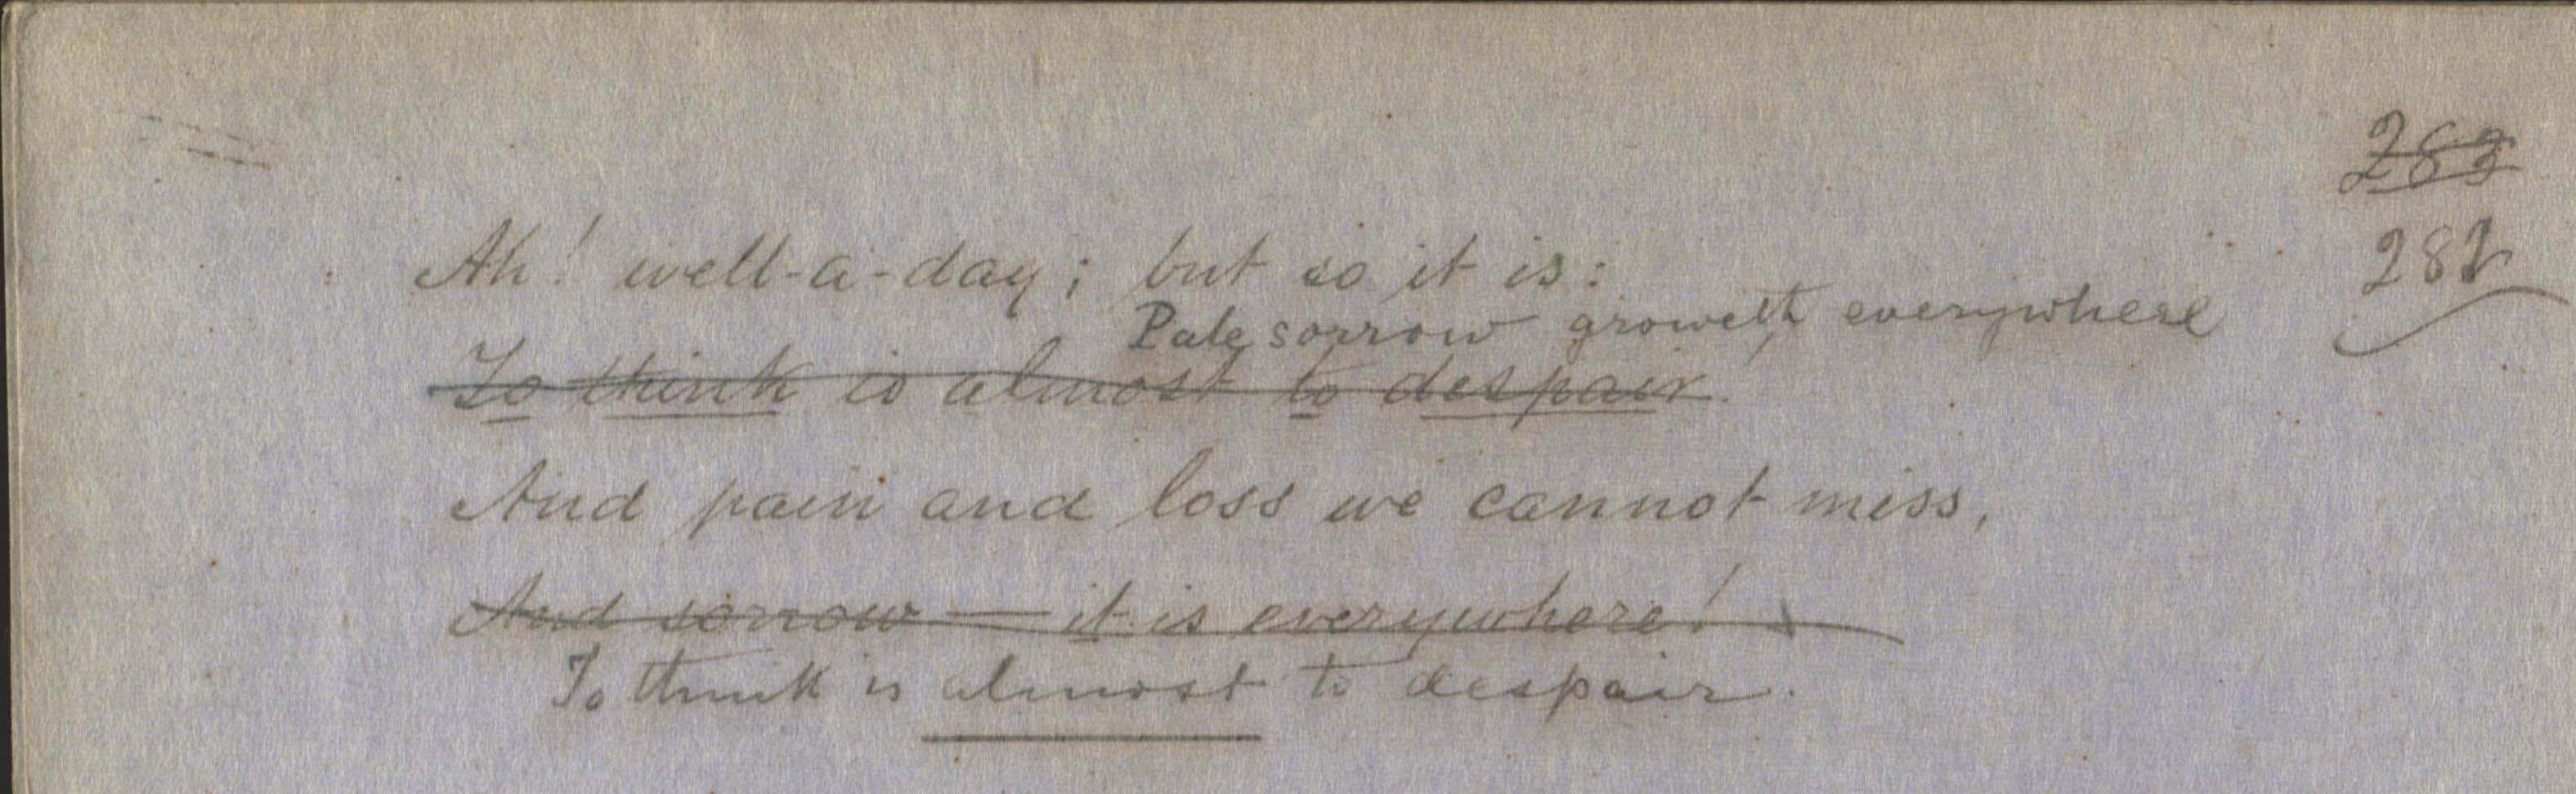 283
Ah! well-a-day; but so it is:
282
Pale sorrow groweth everywhere
To think is almost to despair.
And pain and loss we cannot miss,
And sorrow — it is everywhere!
To think is almost to despair.